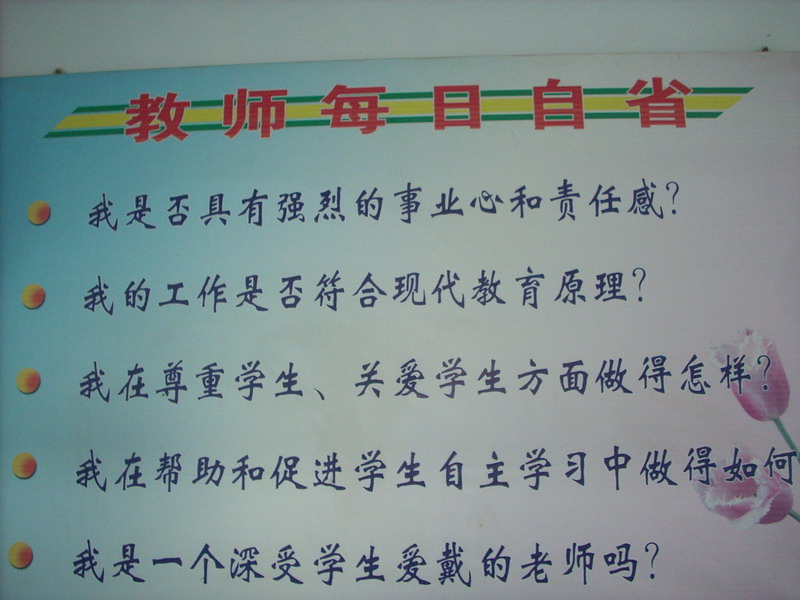 教师每日自省
我是否具有强烈的事业心和责任感?
我的工作是否符合现代教育原理?
我在尊重学生、关爱学生方面做得怎样?
我在帮助和促进学生自主学习中做得如何
我是一个深受学生爱戴的老师吗?